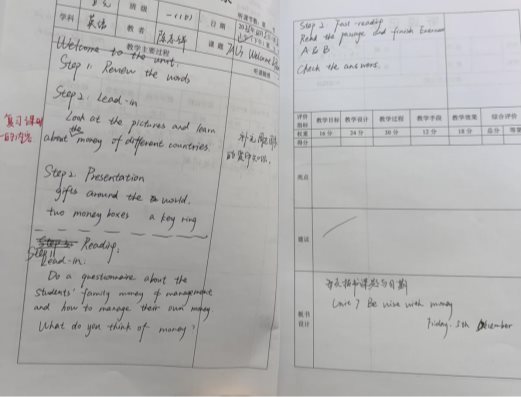 学科 英语 班级 一(18) 日期
教者 课题 7AU7 Welcome
教学主要过程
Welcome to the unit.
Step 1. Review the words
Step 2. Lead-in
Look at the pictures and learn
about the money of different countries.
Step 2. Presentation
gifts around the world.
two money boxes a key ring
Step 1 Reading:
Lead-in:
Do a questionnaire about the
students' family money of management
and how to manage their own money
What do you think of money?
复习课
Step 2 Fast-reading
Read the passage and finish Exercise
A & B.
Check the answers.
评价指标 教学目标 教学设计 教学过程 教学手段 教学效果 综合评价
权重 16分 24分 30分 12分 18分 总分 等第
得分
亮点
建议
板书设计
Unit 7 Be wise with money
Friday. 5th December